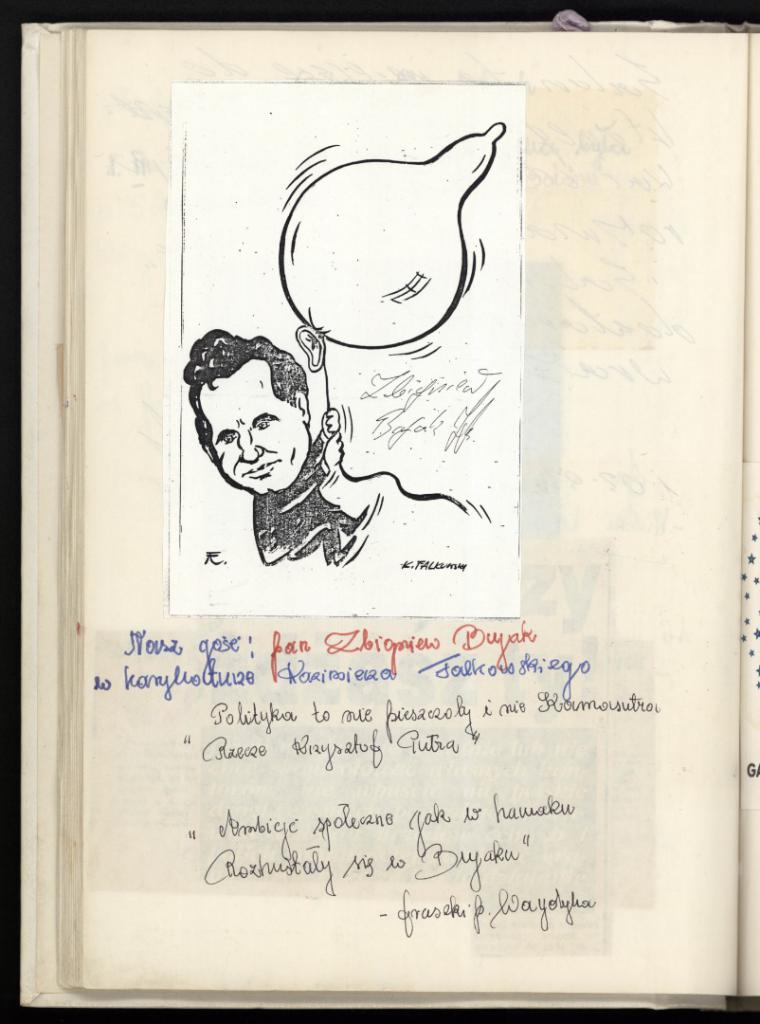 Zbigniew
Bujak
K. FALKOWSKI
Nasz gość: pan Zbigniew Bujak
w karykaturze Kazimierza Falkowskiego
Polityka to nie pieszczoty i nie Kamasutra
" Rzecze Krzysztof Putra "
" Ambicje społeczne jak w hamaku
Rozhuśtały się w Bujaku "
- fraszki p. Waydyka
GA